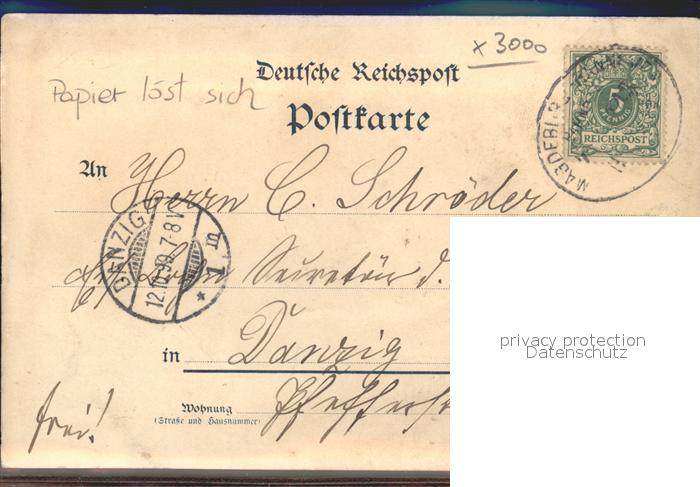 x 3000
Deutsche Reichspost
Papier löst sich
Postkarte
5
PFENNIG
REICHSPOST
MAGDEBURG
An Herrn C. Schröder
DANZIG
12.10.99.7-8V
1 m
*
Secretär d.
in Danzig
Wohnung
(Straße und Hausnummer)
frei!
privacy protection
Datenschutz